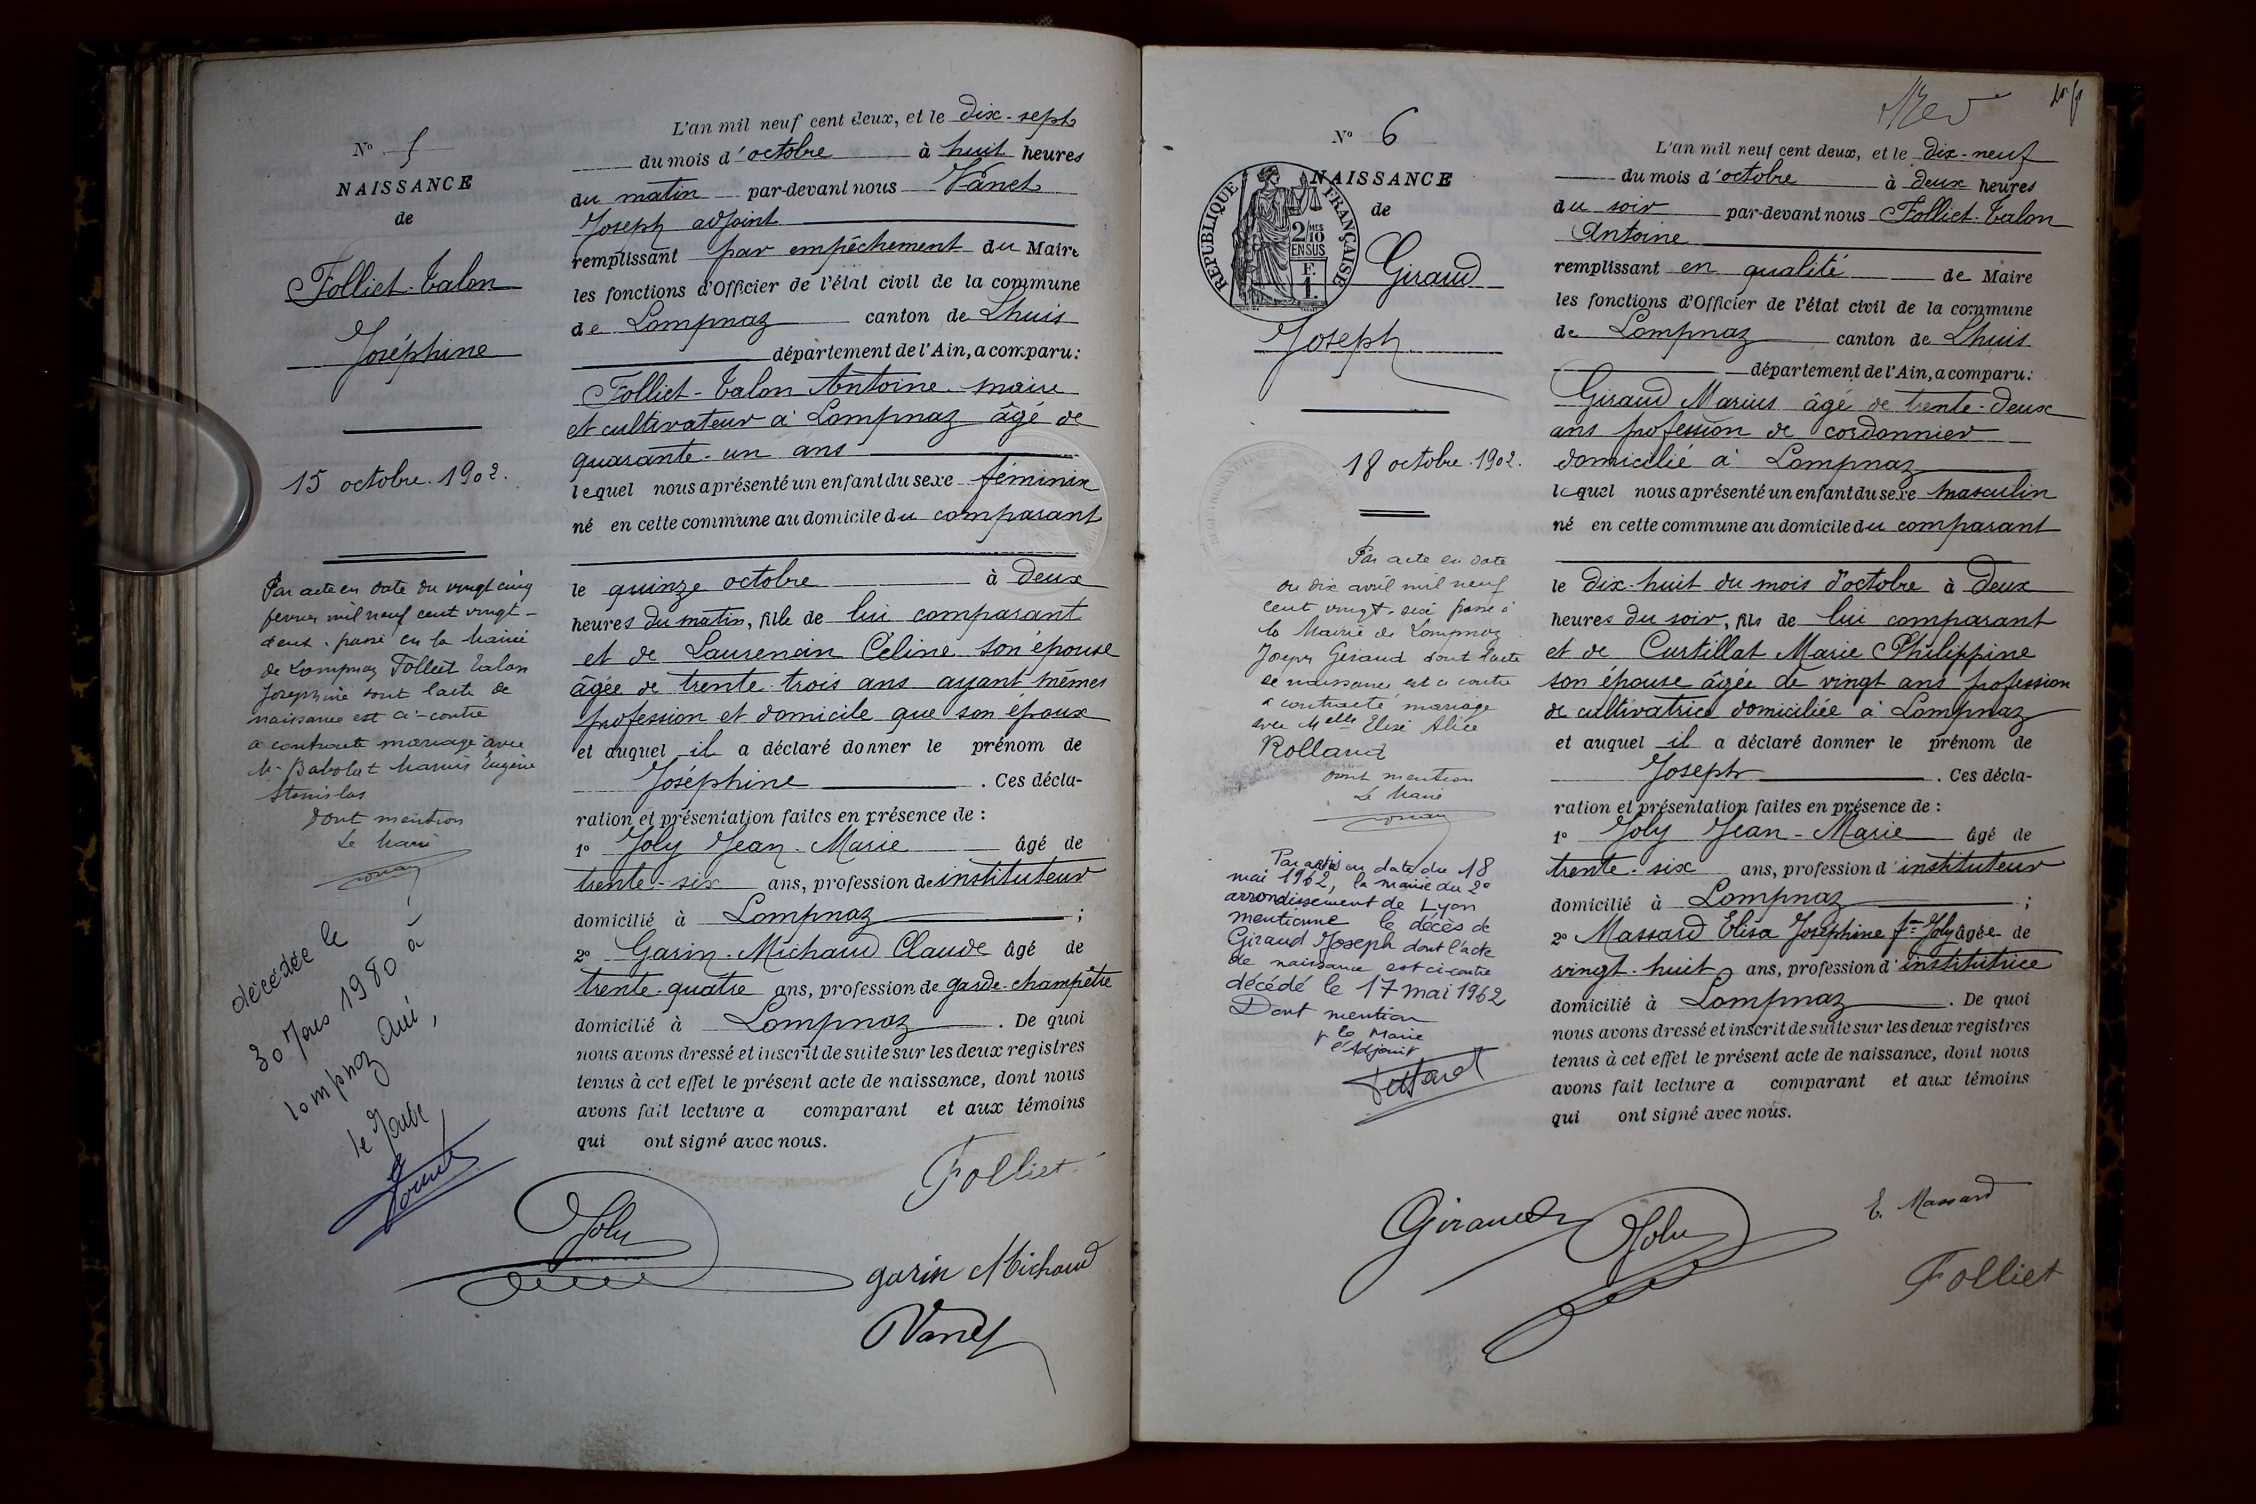 N° 5
NAISSANCE
de
Folliet-Talon
Joséphine
15 octobre. 1902.
Par acte en date du vingt cinq
fevrier mil neuf cent vingt-
deux. passé en la Mairie
de Lompnaz Folliet Talon
Josephine dont l'acte de
naissance est ci-contre
a contracté mariage avec
Mr Babolat Marius Eugène
Stanislas
Dont mention
Le Maire
décédée le
30 Mars 1980 à
lompnaz Ain,
le Maire
L'an mil neuf cent deux, et le dix-sept
du mois d'octobre à huit heures
du matin par-devant nous Vanel
Joseph adjoint
remplissant par empêchement du Maire
les fonctions d'Officier de l'état civil de la commune
de Lompnaz canton de Lhuis
département de l'Ain, a comparu:
Folliet-Talon Antoine maire
et cultivateur à Lompnaz âgé de
quarante-un ans
lequel nous a présenté un enfant du sexe féminin
né en cette commune au domicile du comparant
le quinze octobre à deux
heures du matin, fille de lui comparant
et de Laurencin Céline son épouse
âgée de trente-trois ans ayant mêmes
profession et domicile que son époux
et auquel il a déclaré donner le prénom de
Joséphine . Ces décla-
ration et présentation faites en présence de :
1° Joly Jean-Marie âgé de
trente-six ans, profession de instituteur
domicilié à Lompnaz ;
2° Garin-Michaud Claude âgé de
trente-quatre ans, profession de garde-champêtre
domicilié à Lompnaz . De quoi
nous avons dressé et inscrit de suite sur les deux registres
tenus à cet effet le présent acte de naissance, dont nous
avons fait lecture a comparant et aux témoins
qui ont signé avec nous.
Folliet
Joly
garin Michaud
Vanel
N° 6
NAISSANCE
de
RÉPUBLIQUE FRANÇAISE
2/10 MES
EN SUS
F.
1.
Giraud
Joseph
18 octobre. 1902.
Par acte en date
du dix avril mil neuf
cent vingt-six passé à
la Mairie de Lompnaz
Joseph Giraud dont l'acte
de naissance est ci contre
a contracté mariage
avec Melle Elise Alice
Rolland
dont mention
Le Maire
Par avis en date du 18
mai 1962, la mairie du 2e
arrondissement de Lyon
mentionne le décès de
Giraud Joseph dont l'acte
de naissance est ci-contre
décédé le 17 mai 1962
Dont mention
p le Maire
l'Adjoint
L'an mil neuf cent deux, et le dix-neuf
du mois d'octobre à deux heures
du soir par-devant nous Folliet-Talon
Antoine
remplissant en qualité de Maire
les fonctions d'Officier de l'état civil de la commune
de Lompnaz canton de Lhuis
département de l'Ain, a comparu:
Giraud Marius âgé de trente-deux
ans profession de cordonnier
domicilié à Lompnaz
lequel nous a présenté un enfant du sexe masculin
né en cette commune au domicile du comparant
le dix-huit du mois d'octobre à deux
heures du soir, fils de lui comparant
et de Curtillat Marie Philippine
son épouse âgée de vingt ans profession
de cultivatrice domiciliée à Lompnaz
et auquel il a déclaré donner le prénom de
Joseph . Ces décla-
ration et présentation faites en présence de :
1° Joly Jean-Marie âgé de
trente-six ans, profession d'instituteur
domicilié à Lompnaz ;
2° Massard Elisa Joséphine fme Joly âgée de
vingt-huit ans, profession d'institutrice
domicilié à Lompnaz . De quoi
nous avons dressé et inscrit de suite sur les deux registres
tenus à cet effet le présent acte de naissance, dont nous
avons fait lecture a comparant et aux témoins
qui ont signé avec nous.
Giraud
Joly
E. Massard
Folliet